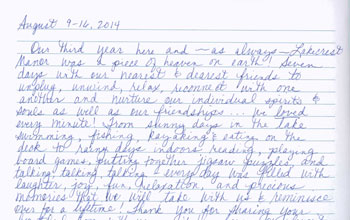 August 9-16, 2014
Our third year here and – as always – Lakecrest
Manor was a piece of heaven on earth! Seven
days with our nearest & dearest friends to
unplug, unwind, relax, reconnect with one
another and nurture our individual spirits &
souls as well as our friendships... we loved
every minute! From sunny days in the lake
swimming, fishing, kayaking & eating on the
dock to rainy days indoors reading, playing
board games, putting together jigsaw puzzles, and
talking, talking, talking – every day was filled with
laughter, joy, fun, relaxation, and precious
memories that we will take with us & reminisce
over for a lifetime. Thank you for sharing your